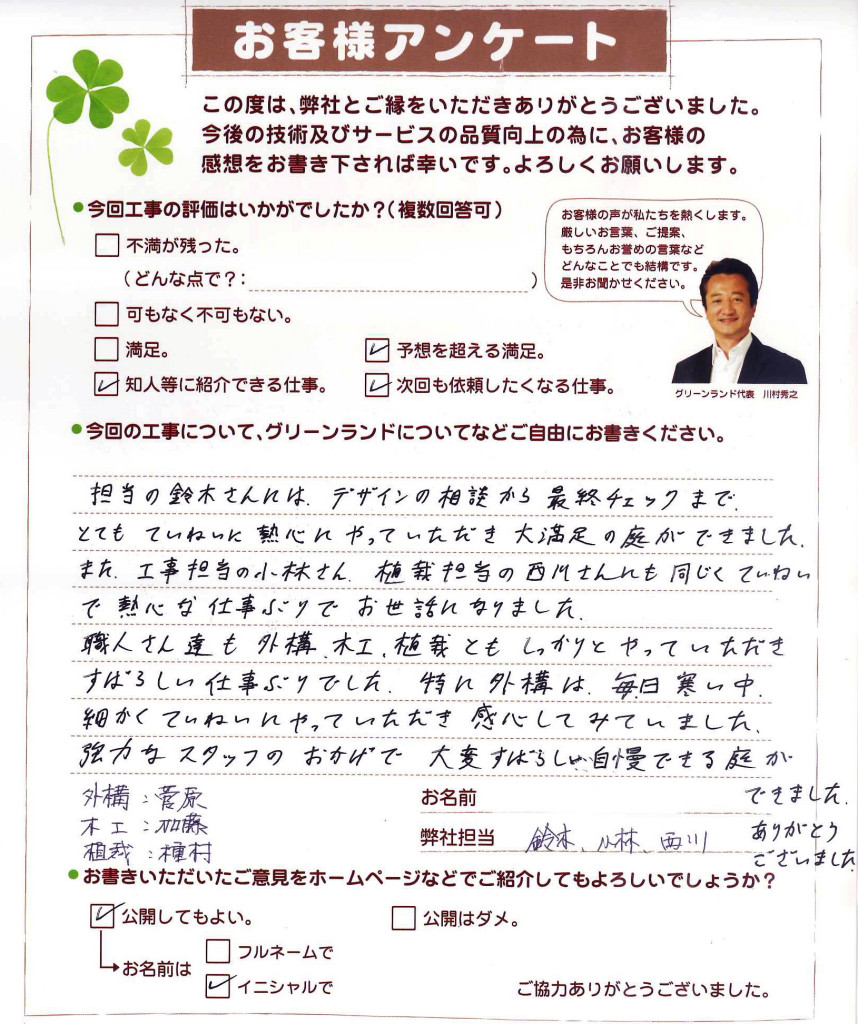 お客様アンケート
この度は、弊社とご縁をいただきありがとうございました。
今後の技術及びサービスの品質向上の為に、お客様の
感想をお書き下されば幸いです。よろしくお願いします。
●今回工事の評価はいかがでしたか？（複数回答可）
お客様の声が私たちを熱くします。
厳しいお言葉、ご提案、
もちろんお誉めの言葉など
どんなことでも結構です。
是非お聞かせください。
不満が残った。
（どんな点で？：　）
可もなく不可もない。
満足。 予想を超える満足。
知人等に紹介できる仕事。 次回も依頼したくなる仕事。
グリーンランド代表　川村秀之
●今回の工事について、グリーンランドについてなどご自由にお書きください。
担当の鈴木さんには、デザインの相談から最終チェックまで、
とても ていねいに 熱心に やっていただき 大満足の庭ができました。
また、工事担当の小林さん、植栽担当の西川さんにも同じくていねい
で 熱心な 仕事ぶりで お世話になりました。
職人さん達も 外構、木工、植栽とも しっかりと やっていただき
すばらしい仕事ぶりでした。特に外構は、毎日寒い中、
細かくていねいにやっていただき 感心してみていました。
強力なスタッフのおかげで 大変すばらしい自慢できる庭が
できました。
ありがとう
ございました
外構：菅原
木工：加藤
植栽：種村
お名前
弊社担当 鈴木、小林、西川
●お書きいただいたご意見をホームページなどでご紹介してもよろしいでしょうか？
公開してもよい。 公開はダメ。
お名前は フルネームで
イニシャルで
ご協力ありがとうございました。